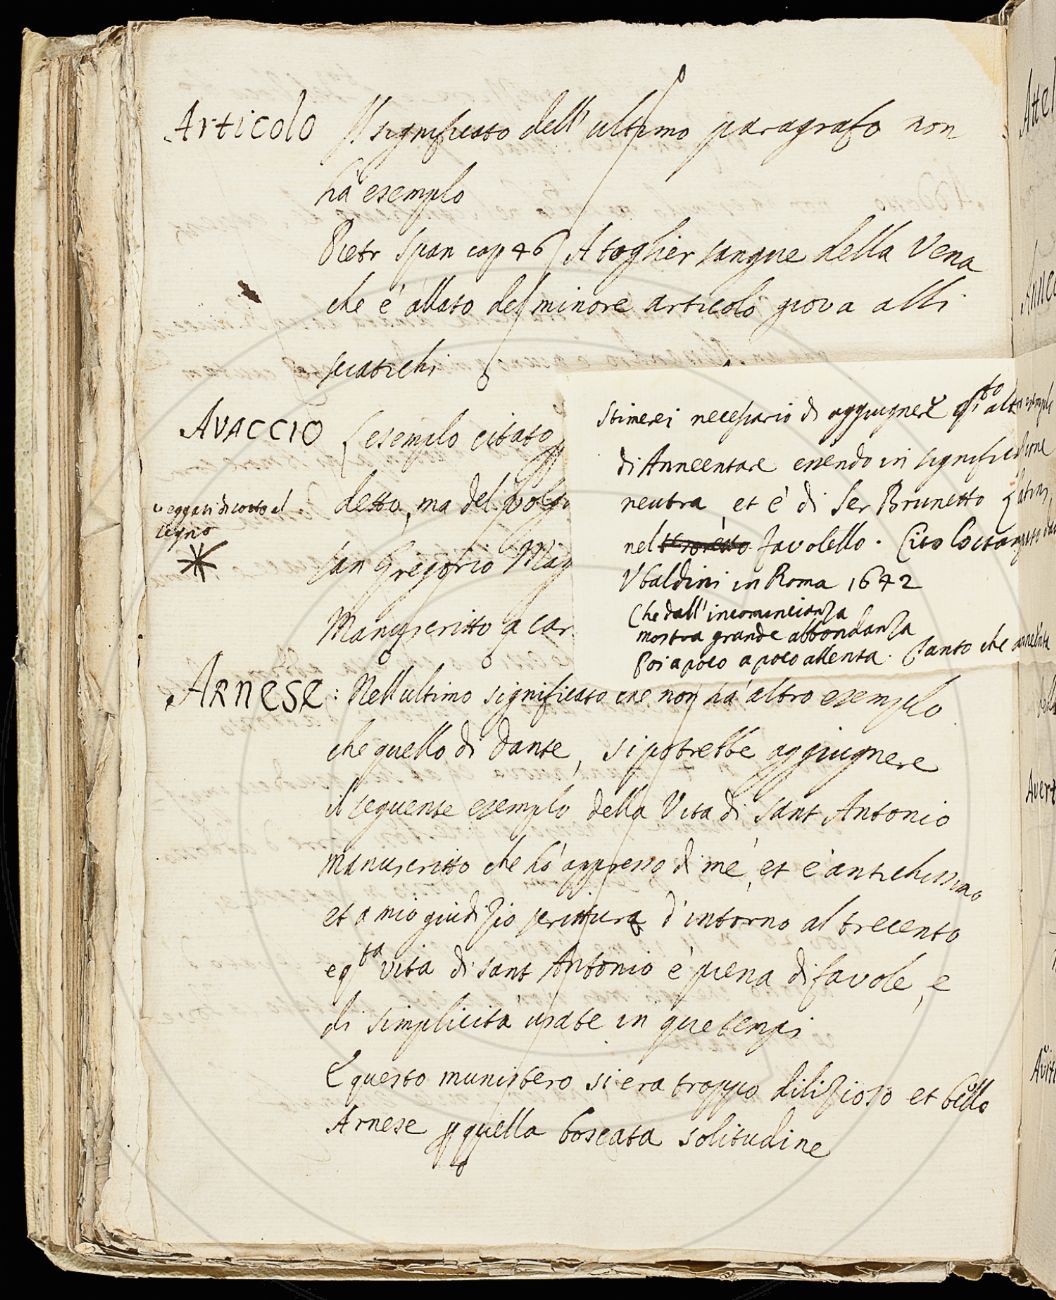 Articolo Il significato dell'ultimo paragrafo non
ha esemplo
Pietr Span cap 46 A toglier sangue della Vena
che è allato del minore articolo giova alli
sciatichi
AVACCIO L'esemplo citato
detto, ma del
veggasi dicontro al
segno
San Gregorio
Manuscritto a car
Stimerei necessario di aggiugnere q.sto altro esemplo
di Anneentare essendo in significazione
neutra et è di Ser Brunetto Latini
nel Favolello. Cito
Ubaldini in Roma 1642
Che dall'incomincianza
mostra grande abbondanza
Poi a poco a poco allenta. Tanto che
ARNESE: Nell'ultimo significato che non ha altro esemplo
che quello di Dante, si potrebbe aggiugnere
il seguente esemplo della Vita di Sant Antonio
manuscritto che ho appresso di me, et è antichissimo
et a mio giudizio scrittura d'intorno al trecento
e q.ta vita di sant Antonio è piena di favole, e
di simplicita usate in que tempi
E questo munistero si era troppo dilizioso et bello
Arnese p quella boscata solitudine